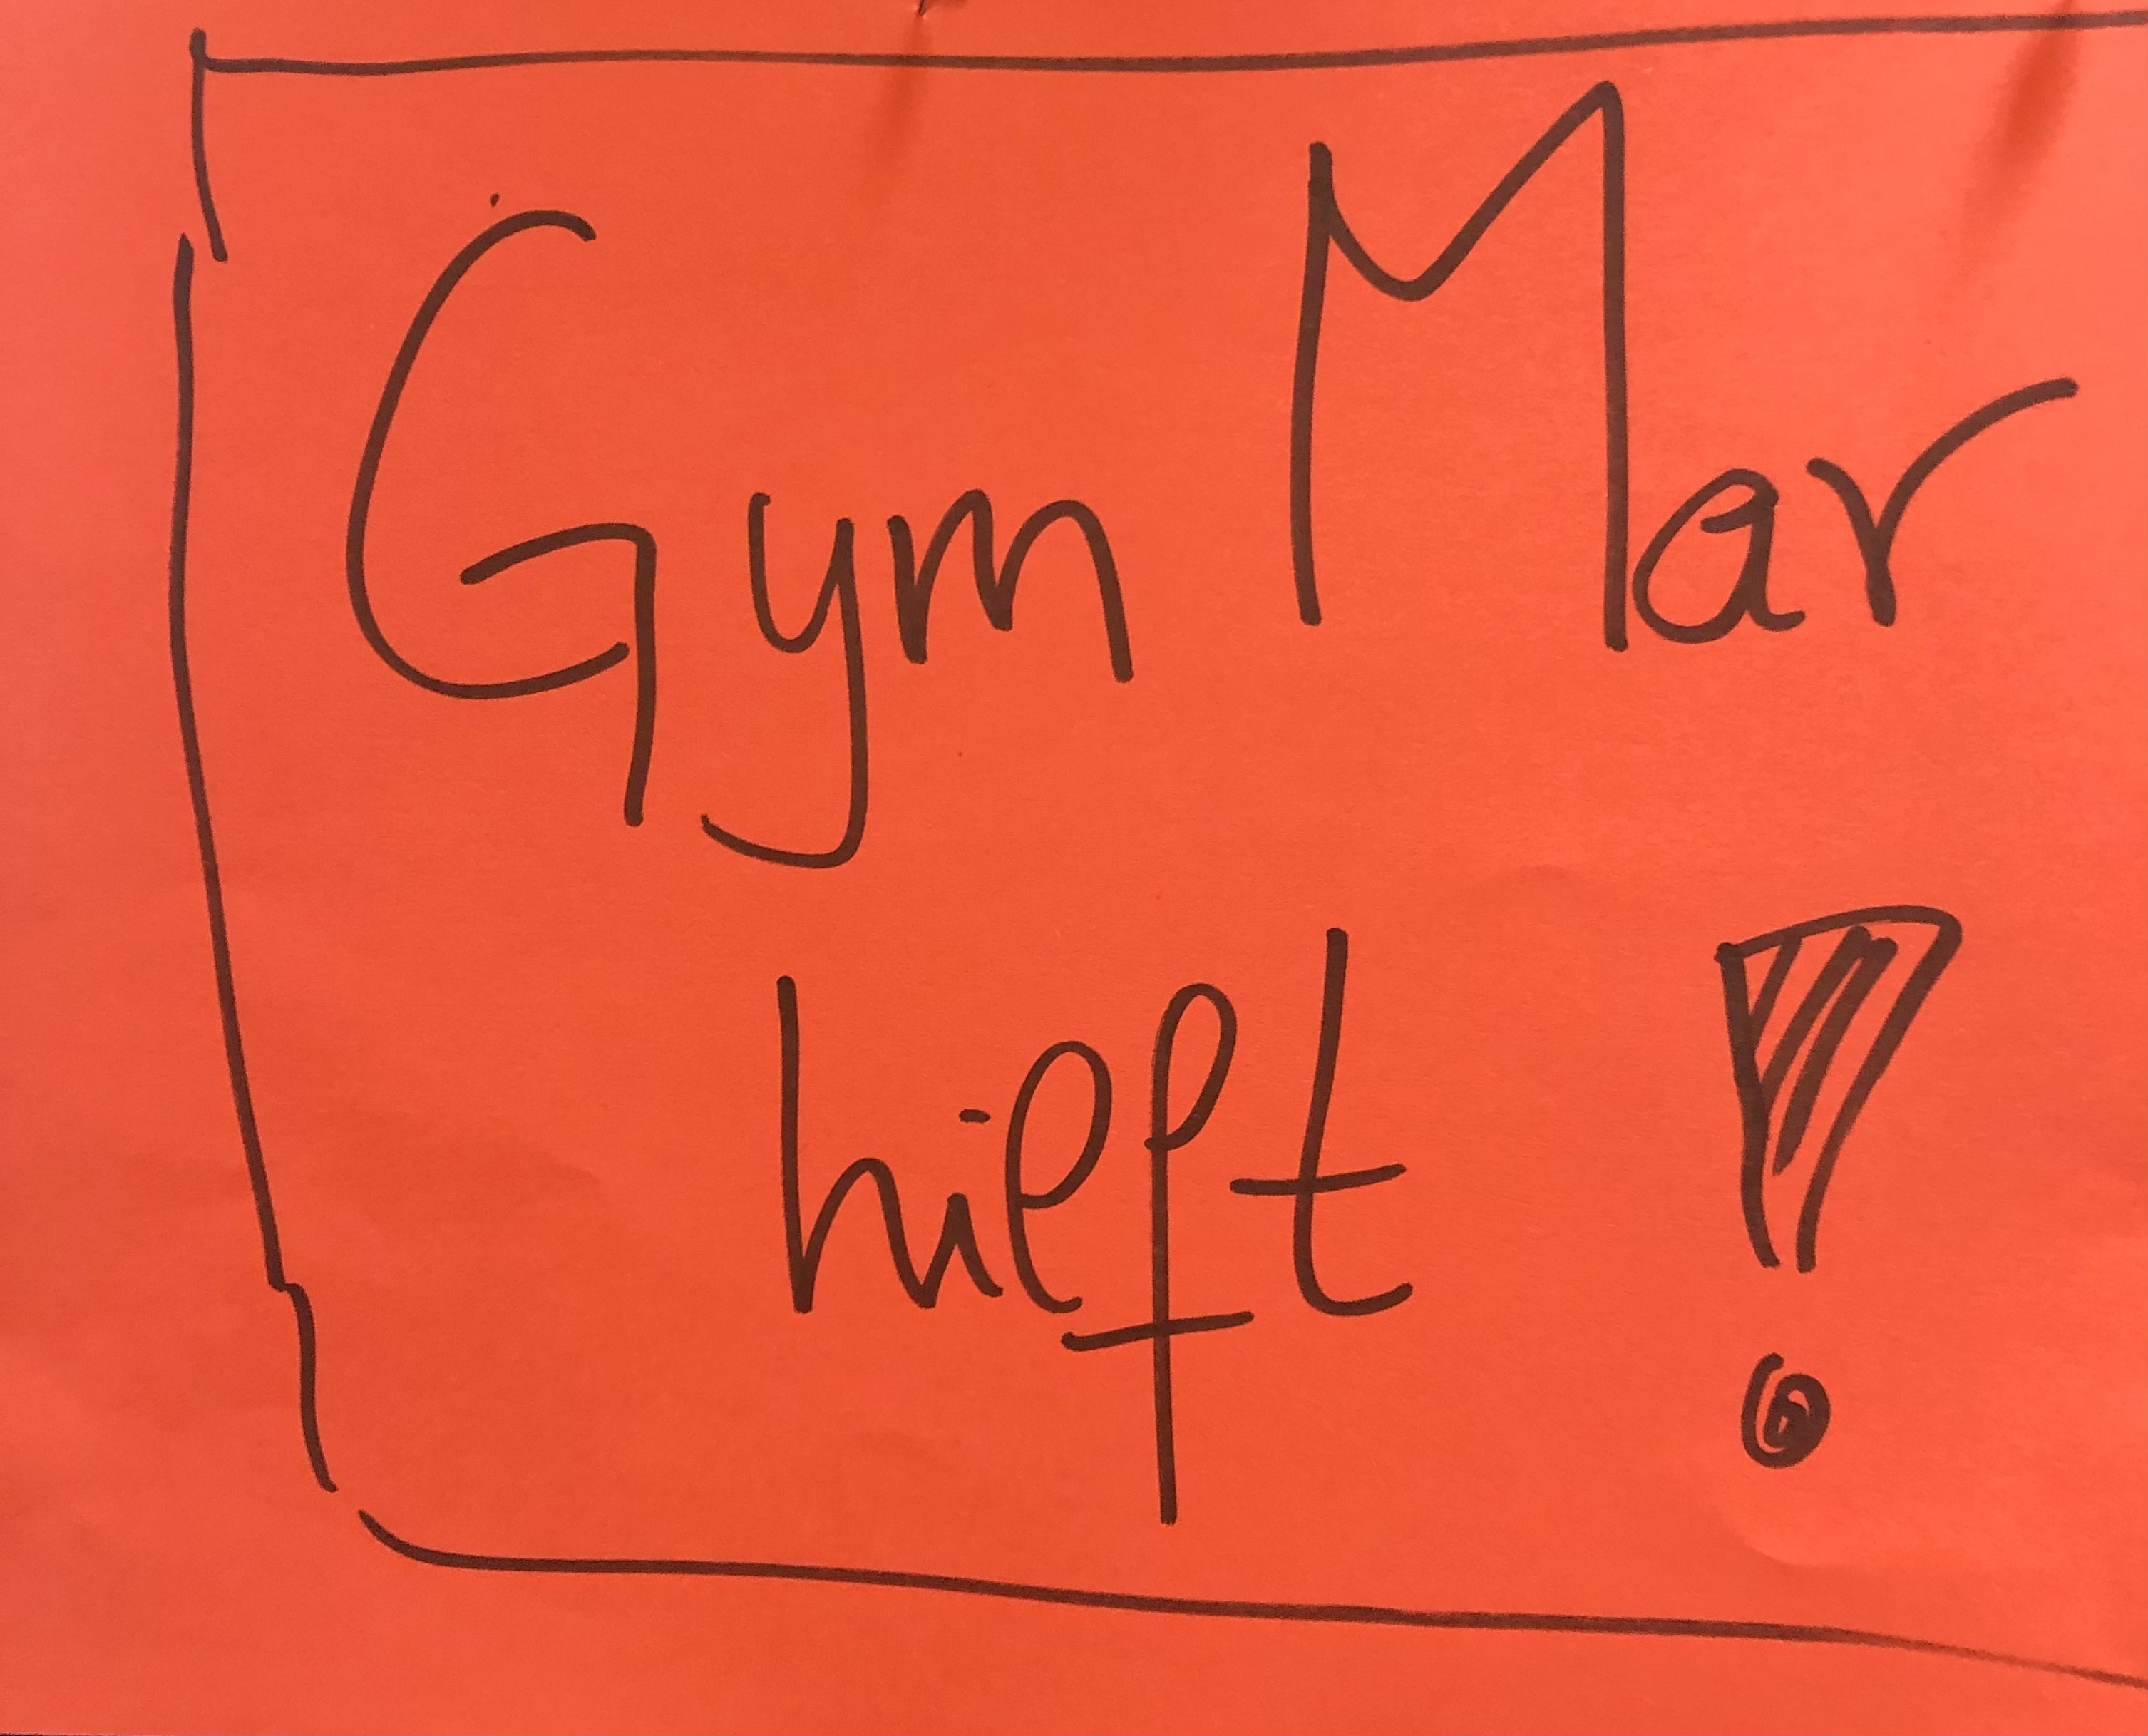 Gym Mar
hilft !